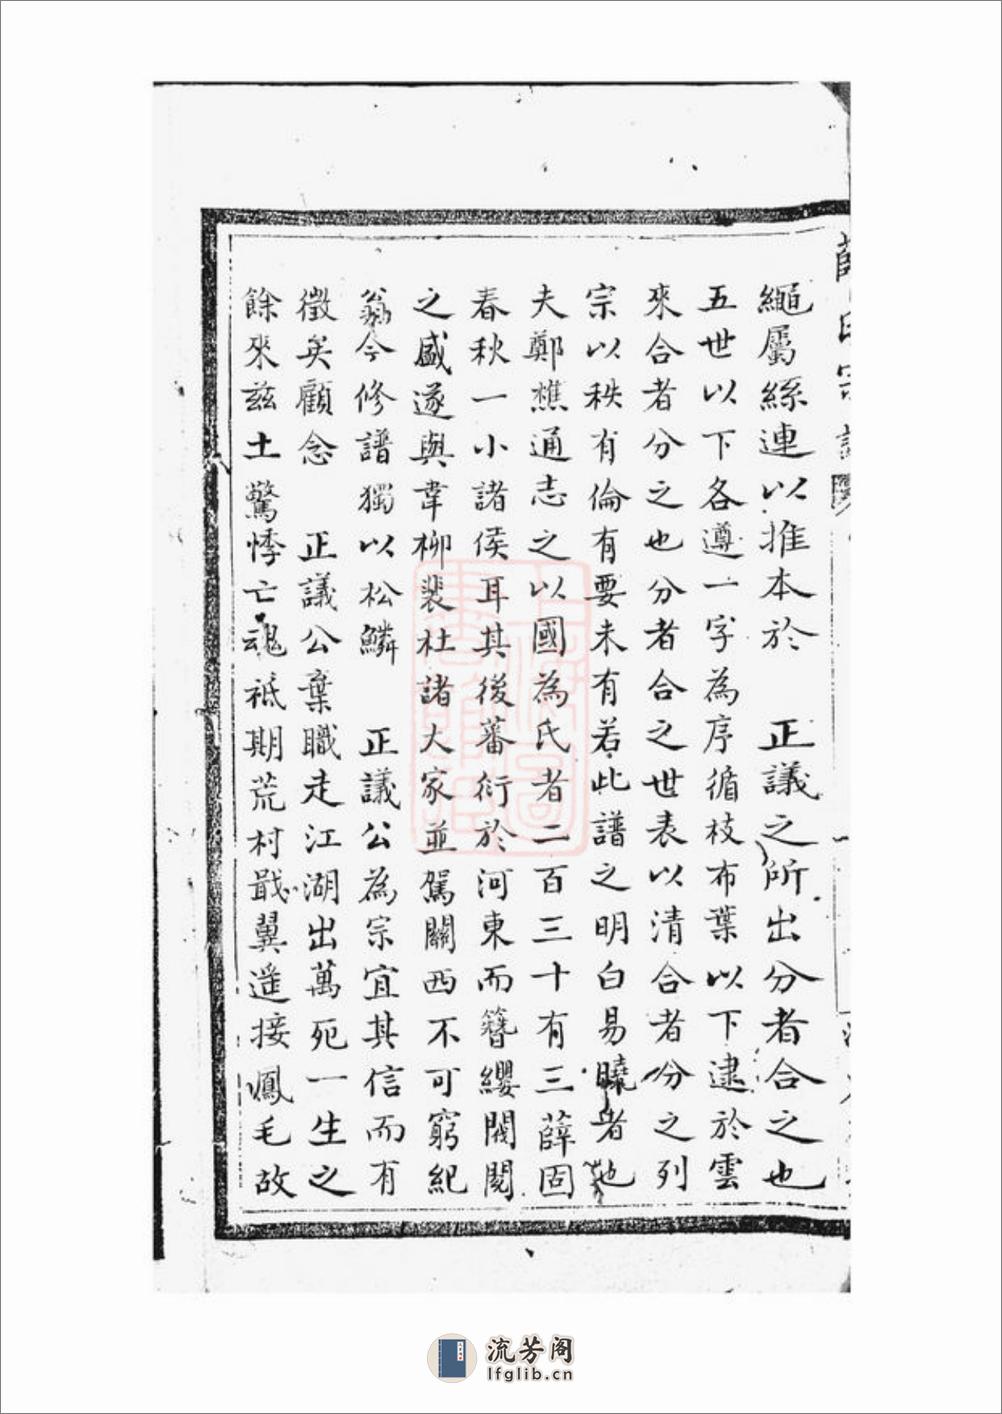 薛氏宗譜
繩屬絲連以推本於　正議之所出分者合之也
五世以下各遵一字為序循枝布葉以下逮於雲
來合者分之也分者合之世表以清合者分之列
宗以秩有倫有要未有若此譜之明白易曉者也
夫鄭樵通志之以國為氏者二百三十有三薛固
春秋一小諸侯耳其後蕃衍於河東而簪纓閥閱
之盛遂與韋柳裴杜諸大家並駕關西不可窮紀
翁今修譜獨以松鱗　正議公為宗宜其信而有
徵矣顧念　正議公棄職走江湖出萬死一生之
餘來茲土驚悸亡魂祗期荒村戢翼遥接鳳毛故
流芳阁
lfglib.cn